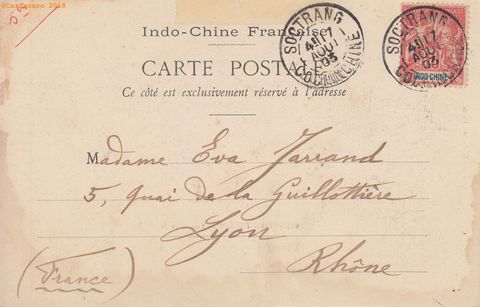 ©Cascacaro 2018
Indo-Chine Française
SOCTRANG
AOUT
03
COCHINCHINE
SOCTRANG
AOUT
03
COCHINCHINE
INDO-CHINE
CARTE POSTALE
Ce côté est exclusivement réservé à l'adresse
Madame Eva Jarrand
5, quai de la Guillottière
Lyon
Rhône
(France)